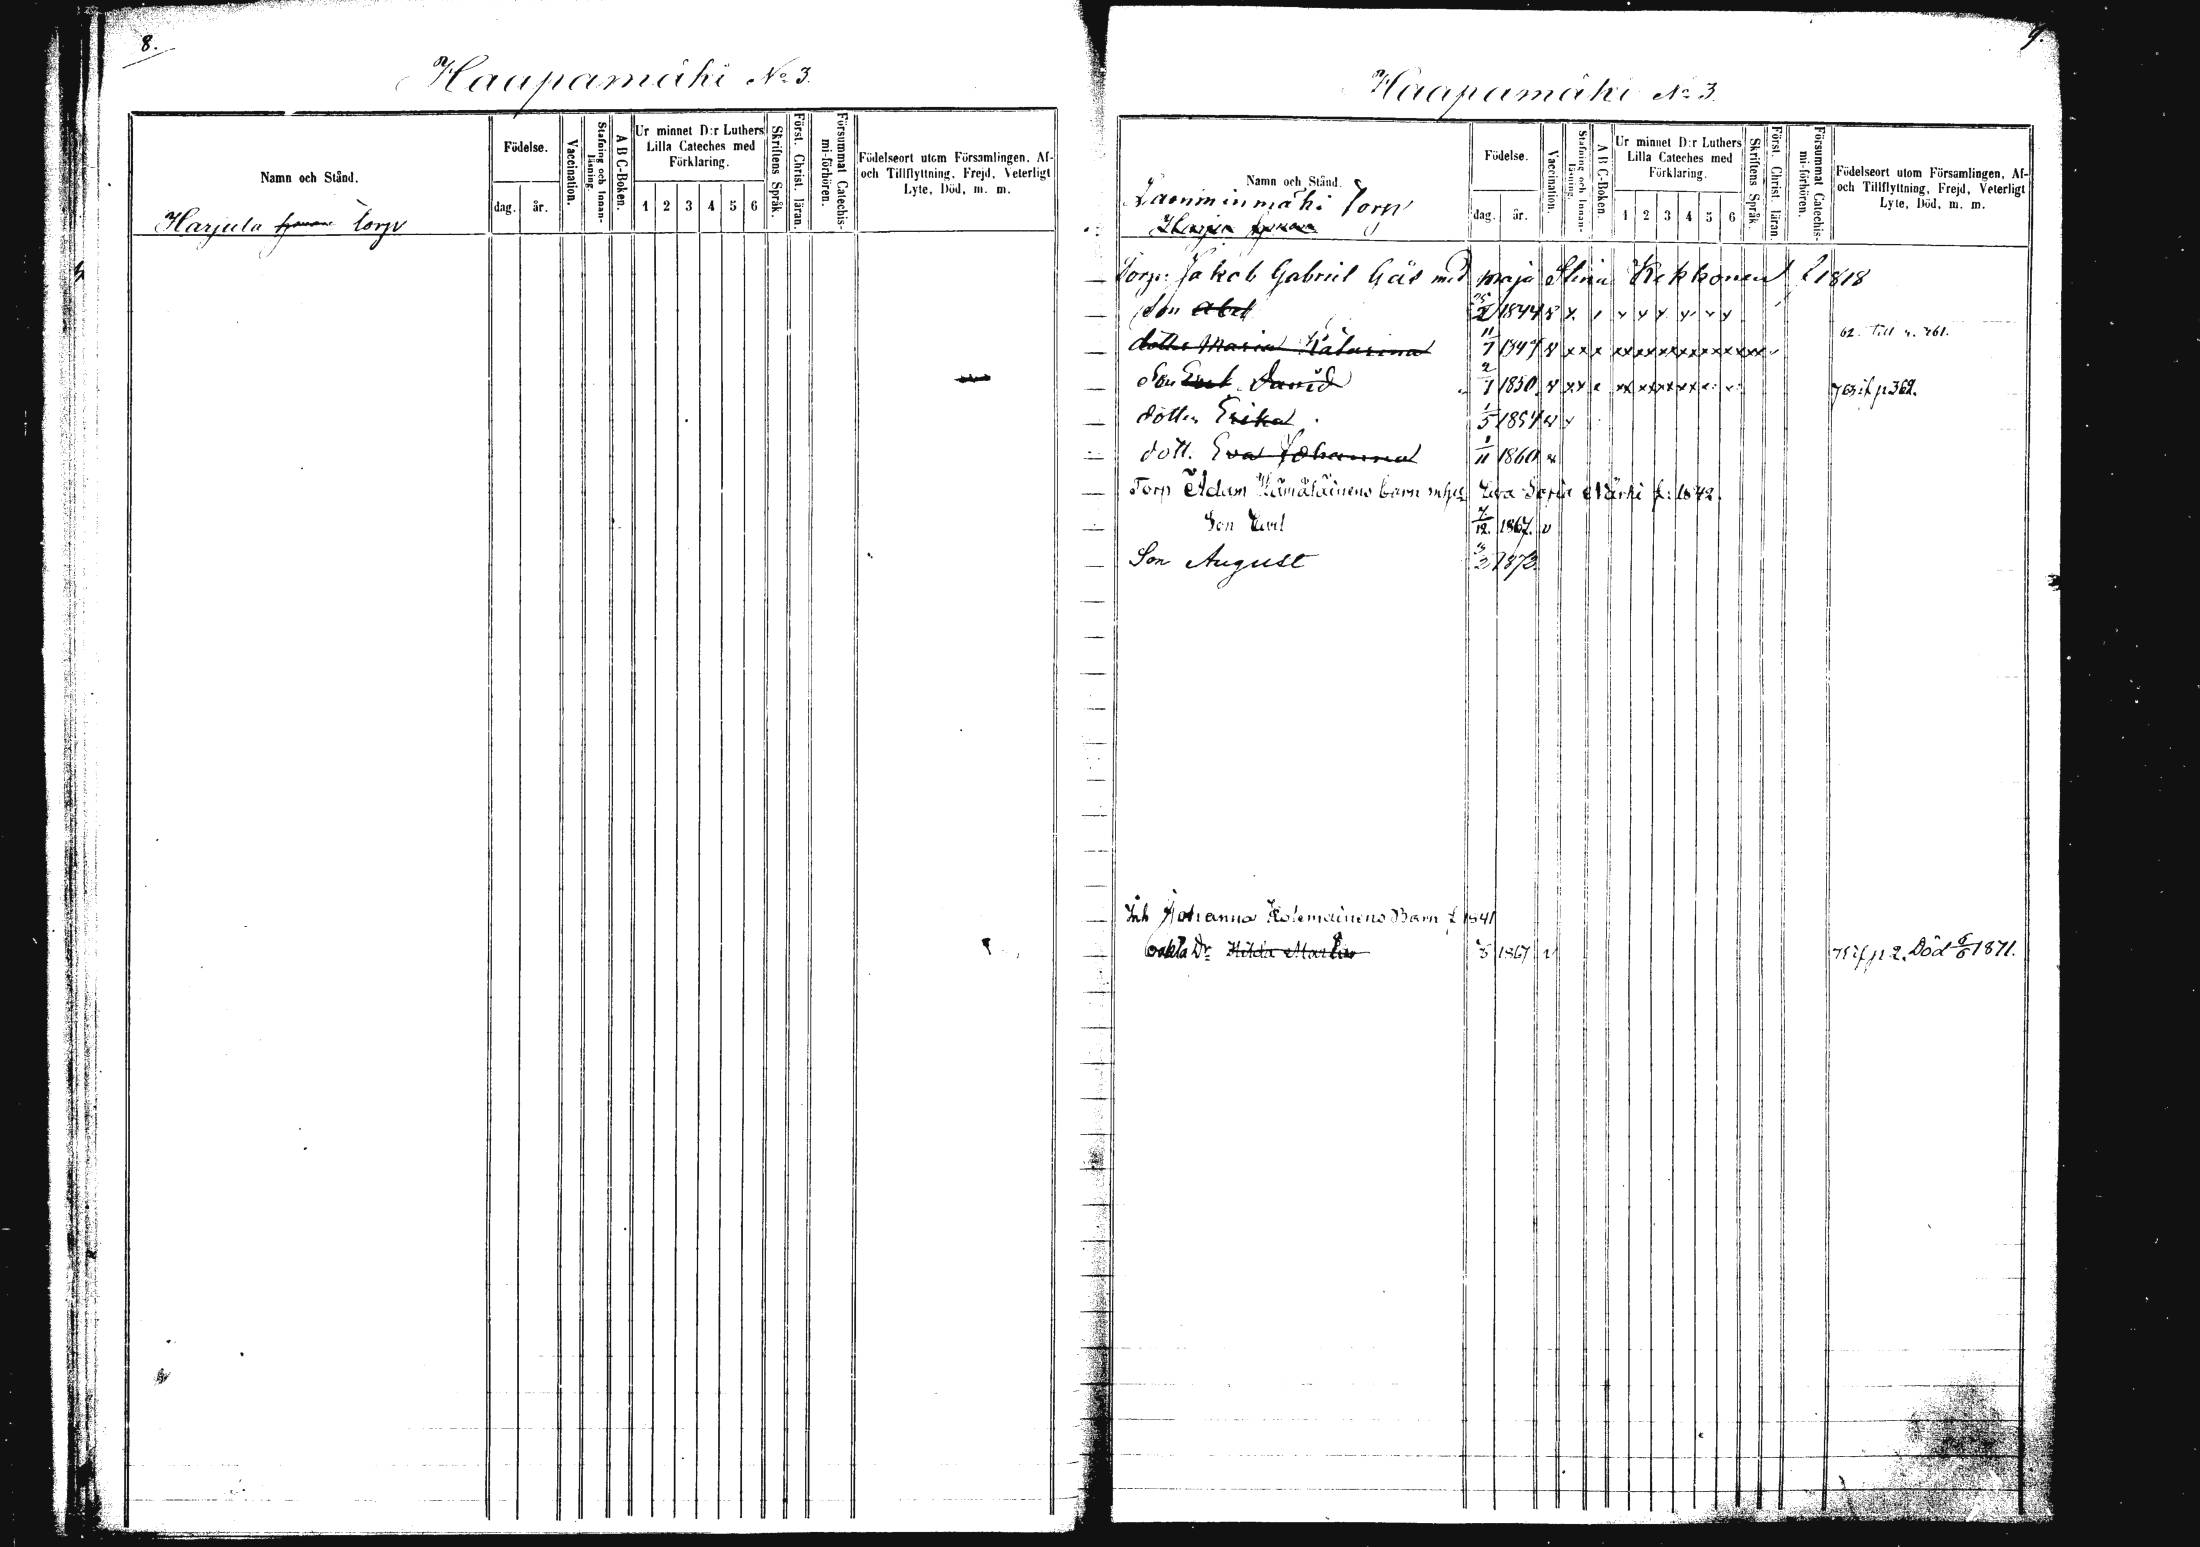 8.
Haapamäki No 3.
Namn och Stånd.
Födelse.
dag.
år.
Vaccination.
Stafning och Innan-
läsning.
A B C-Boken.
Ur minnet D:r Luthers
Lilla Cateches med
Förklaring.
1 2 3 4 5 6
Skriftens Språk.
Först. Christ. läran.
Försummat Catechis-
mi-förhören.
Födelseort utom Församlingen, Af-
och Tillflyttning, Frejd, Veterligt
Lyte, Död, m. m.
Harjula torp
9.
Haapamäki No 3.
Namn och Stånd.
Födelse.
dag.
år.
Vaccination.
Stafning och Innan-
läsning.
A B C-Boken.
Ur minnet D:r Luthers
Lilla Cateches med
Förklaring.
1 2 3 4 5 6
Skriftens Språk.
Först. Christ. läran.
Försummat Catechis-
mi-förhören.
Födelseort utom Församlingen, Af-
och Tillflyttning, Frejd, Veterligt
Lyte, Död, m. m.
Torp
Torp: Jakob Gabriel Gås med Maja Stina Kekkonen f 1818
Son Abel 1844
dotter Maria Katarina 11/7 1847 62. till
Son David 2/1 1850 p 362.
dotter Erika 1/5 1854
dott. Eva Johanna 1/11 1860
Torp Adam Hämäläinens barn Eva Sofia Närhi f: 1842.
Son 7/12 1867. v
Son August 1872
Inh Johanna Kolemainens Barn f 1841
oäkta Dr Hilda Maria 1867 v p 2. Död 1871.